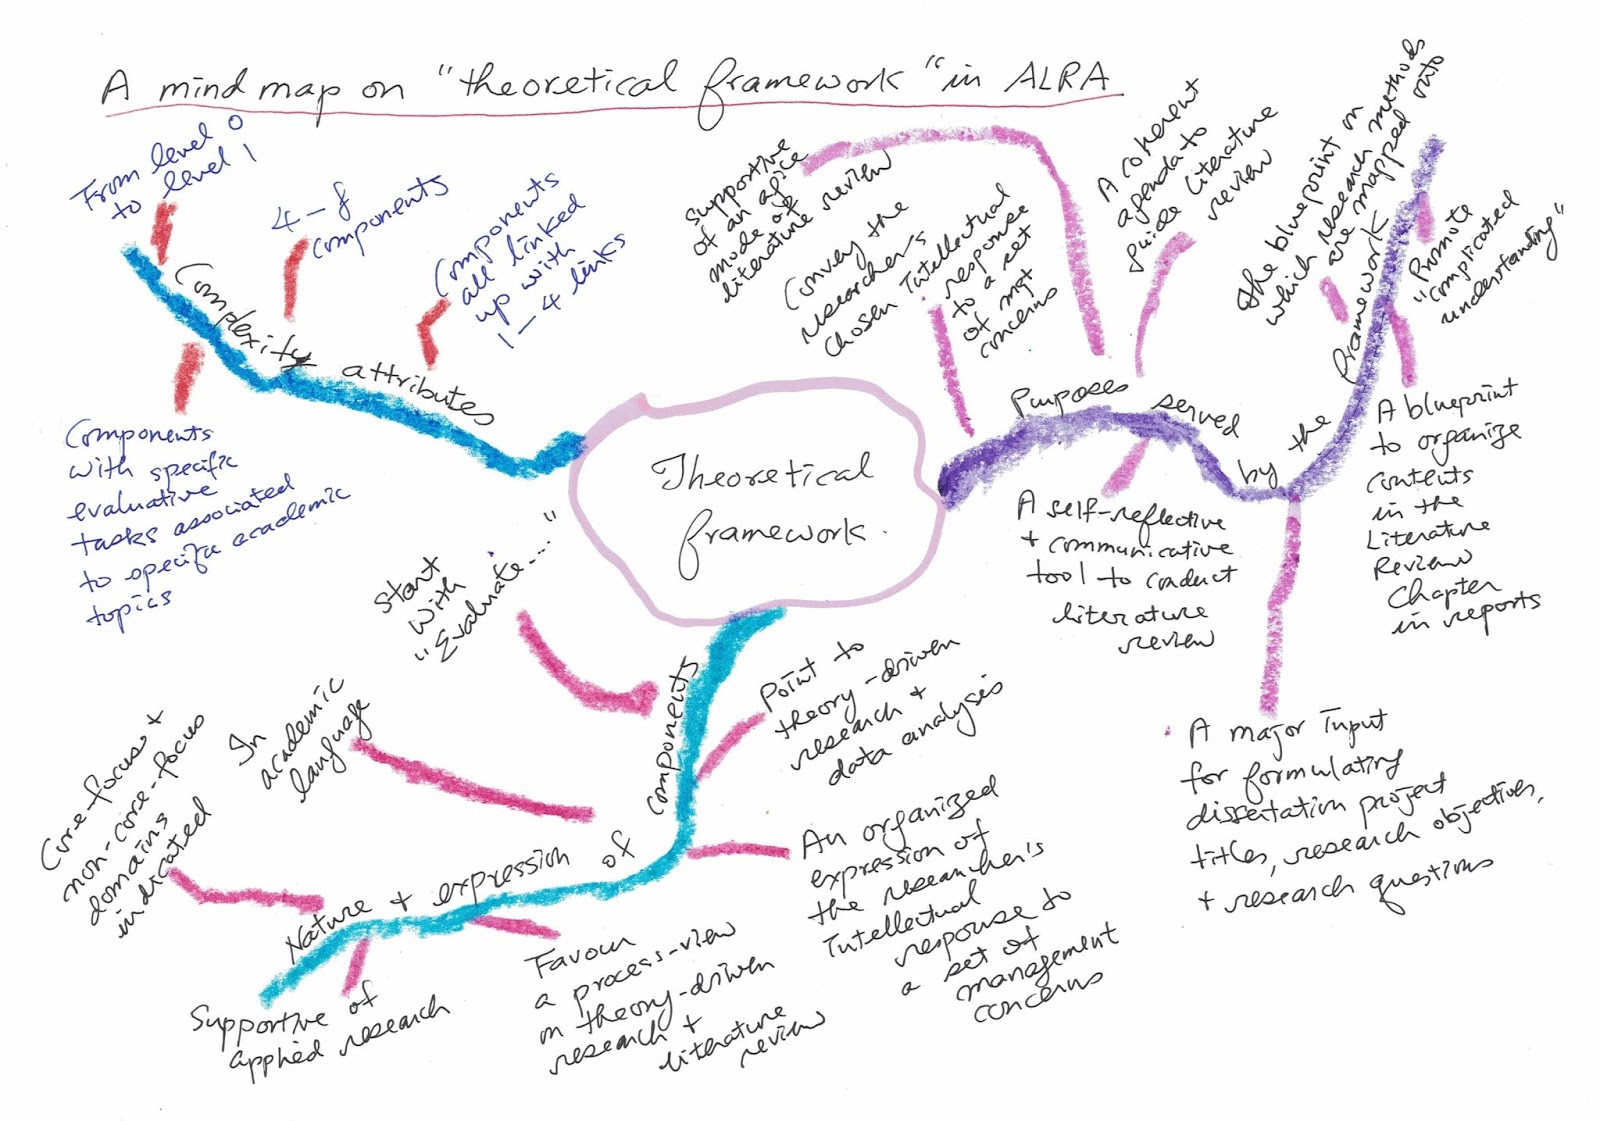 A mind map on "theoretical framework" in ALRA
From level 0
to level 1
4-8
components
Components
all linked
up with
1-4 links
Complexity attributes
Components
with specific
evaluative
tasks associated
to specific academic
topics
Theoretical
framework.
Supportive
of an
mode of
literature review
Convey the
researcher's
chosen Intellectual
response
to a set
of mgt
concerns
A coherent
agenda to
guide literature
review
The blueprint on
which research methods
are mapped onto
Promote
"complicated
understanding"
Purposes served by the framework
A self-reflective
+ communicative
tool to conduct
literature
review
A blueprint
to organize
contents
in the
Literature
Review
Chapter
in reports
A major input
for formulating
dissertation project
titles, research objectives,
+ research questions
Start
with
"Evaluate...."
In
academic
language
Core-focus +
non-core-focus
domains
indicated
Nature + expression of components
Point to
theory-driven
research +
data analysis
An organized
expression of
the researcher's
Intellectual
response to
a set of
management
concerns
Favour
a process-view
on theory-driven
research +
literature
review
Supportive of
applied research